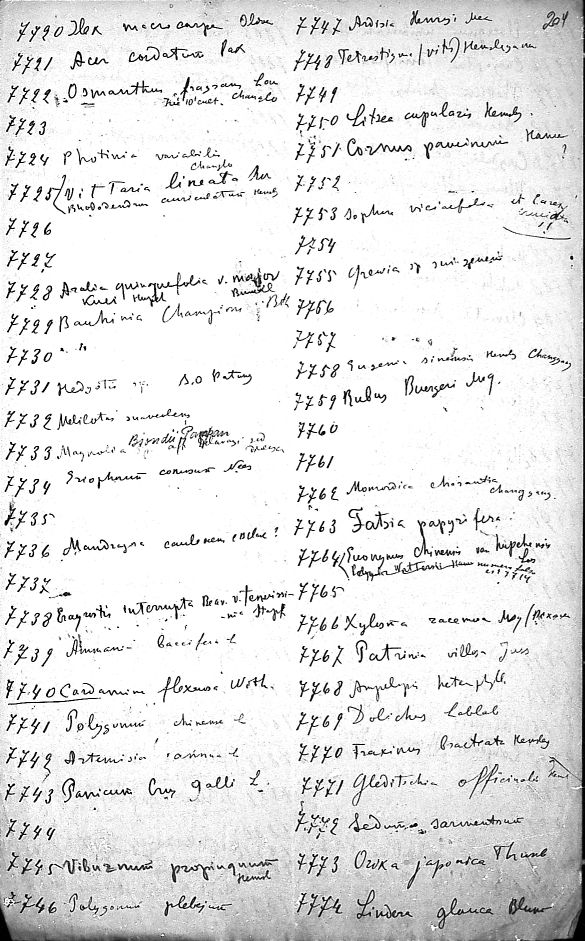 204
7720 Ilex macrocarpa Oliv
7721 Acer cordatum Pax
7722 Osmanthus fragrans Lour
7723
7724 Photinia variabilis
Changlo
7725 Vittaria lineata
Rhododendron auriculatum Hemsl
7726
7727
7728 Azalia quinquefolia v. major
7729 Bauhinia Championi Bth
7730 " "
7731 Hedyotis sp
7732 Melilotus suaveolens
7733 Magnolia Biondii Pampan
7734 Eriophorum comosum Nees
7735
7736 Mandragora caulescens ?
7737
7738 Eragrostis interrupta Beauv. v. tenuissi-
ma Stapf
7739 Ammania baccifera L
7740 Cardamine flexuosa With.
7741 Polygonum chinense L
7742 Artemisia annua L
7743 Panicum Crus galli L.
7744
7745 Viburnum propinquum
Hemsl
7746 Polygonum plebejum
7747 Ardisia Henryi
7748 Tetrastigma (vitis) Hemsleyana
7749
7750 Litsea cupularis Hemsl.
7751 Cornus paucinervis Hance
?
7752
7753 Sophora viciaefolia et Carex
!!
7754
7755 Grewia sp
7756
7757
7758 Eugenia sinensis Hemsl
7759 Rubus Buergeri Miq.
7760
7761
7762 Momordica charantia
7763 Fatsia papyrifera
7764 Euonymus chinensis var hupehensis
7765
7766 Xylosma racemosa Miq
7767 Patrinia villosa Juss
7768 Ampelopsis heterophylla
7769 Dolichos Lablab
7770 Fraxinus bracteata Hemsley
7771 Gleditschia officinalis Hemsl
7772 Sedum sarmentosum
7773 Orixa japonica Thunb
7774 Lindera glauca Blume